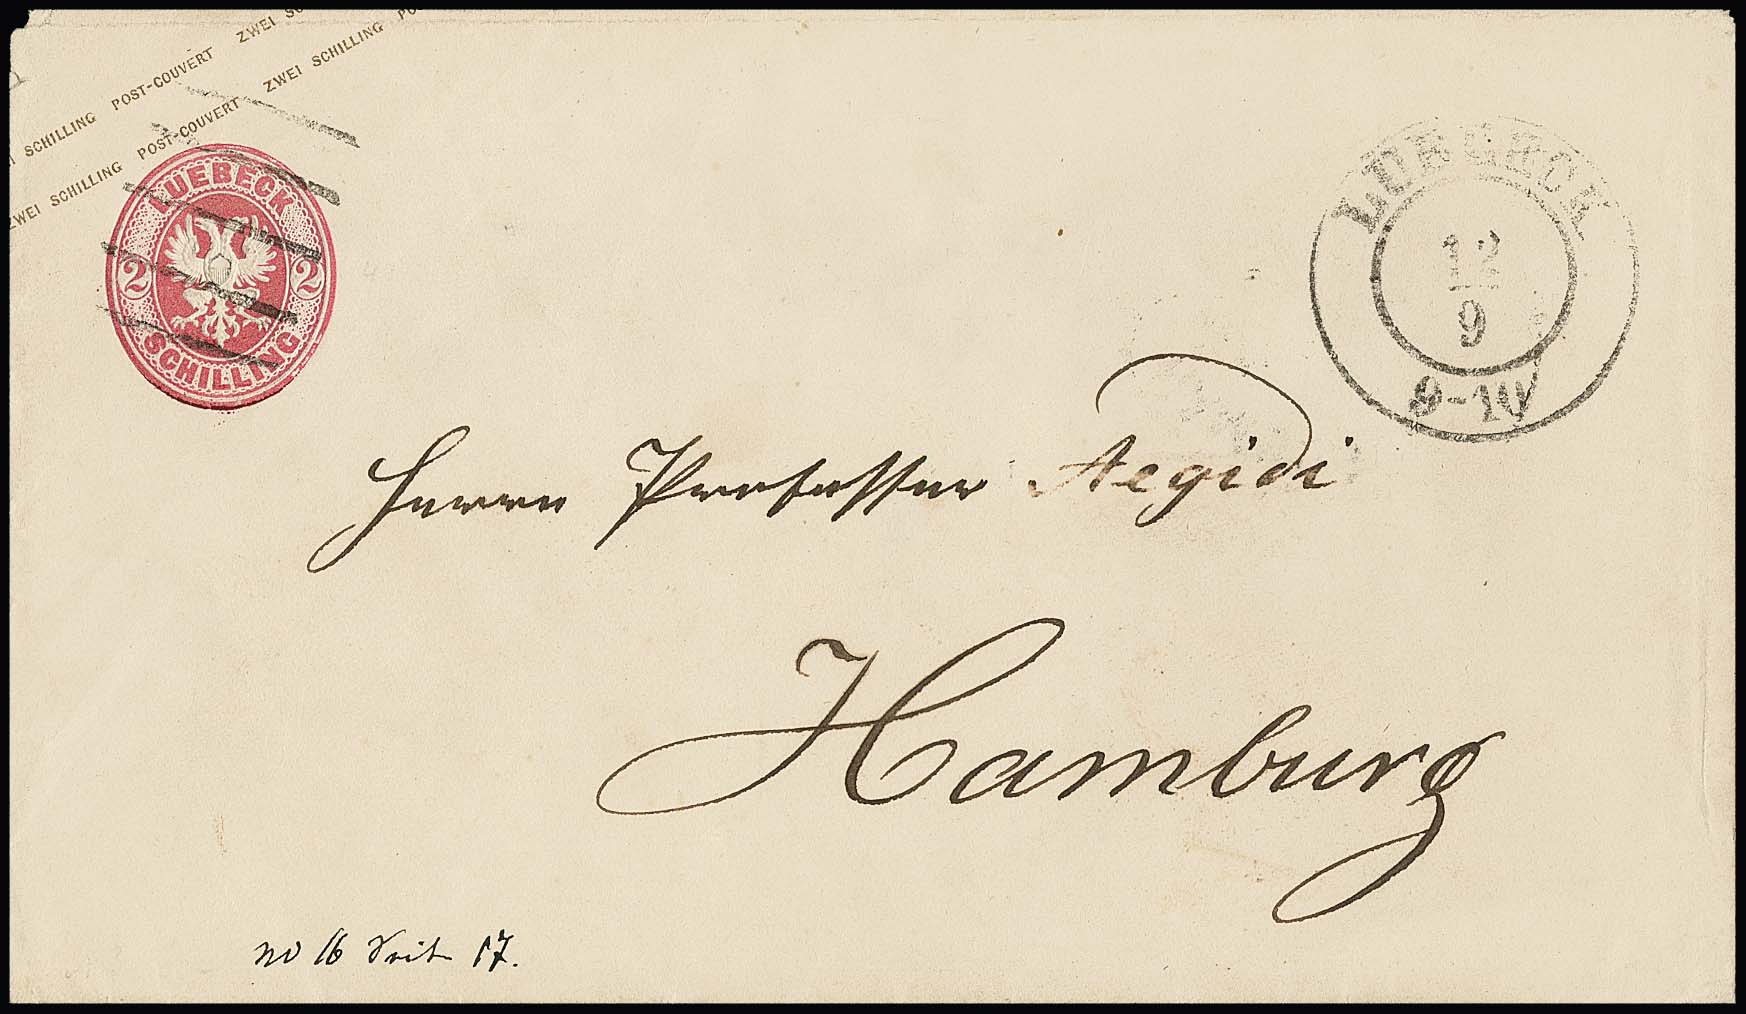 ZWEI SCHILLING POST-COUVERT ZWEI
ZWEI SCHILLING POST-COUVERT ZWEI SCHILLING
LUEBECK
2 2
SCHILLING
LÜBECK
12
9
9-10
Herrn Professor Aegidi
Hamburg
no 16 Seite 17.